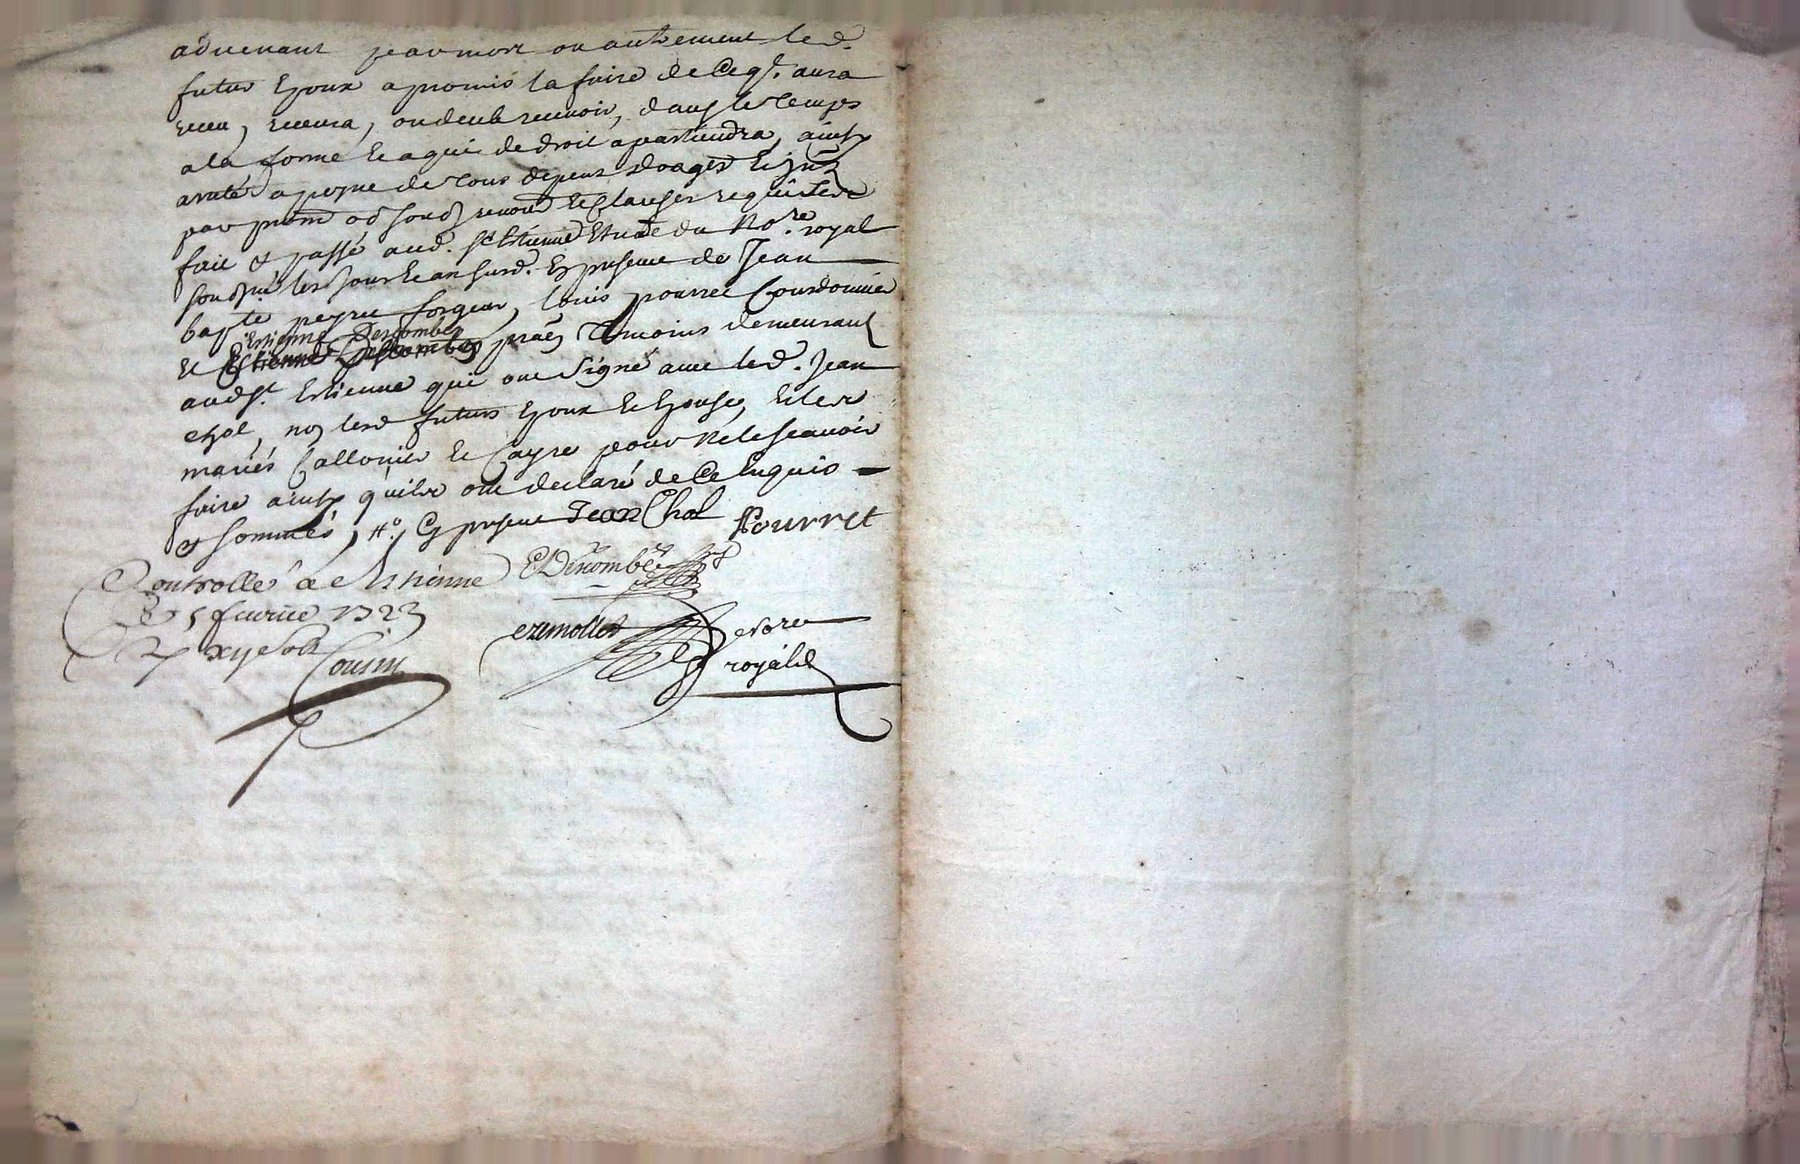 advenant par mort ou autrement led.
futur Epoux a promis la faire de Ce q. aura
receu, recevra, ou deub recevoir, dans le temps
a la forme Et a qui de droit apartiendra, ainsy
a peyne de tous depens domages Et
par prom. renon. Et Clauses requises
fait & passé aud. St Estienne Etude du No.re royal
soub.né les Jour Et an susd. En presence de Jean
bapte peyre forgeur, louis pourret Courdonnier
Et Estienne Descombes temoins demeurant
aud St. Estienne qui ont Signé avec led. Jean
chol, non lesd futurs Epoux Et Epouse, Et les
mariés Et Cayre pour ne le scavoir
faire ainsy qu'ils ont declaré de Ce Enquis
& sommés, En presence Jean Chol Pourret
Controllé a St Estienne
Le 5 fevrier 1723
R xij sols
Cousin
royal